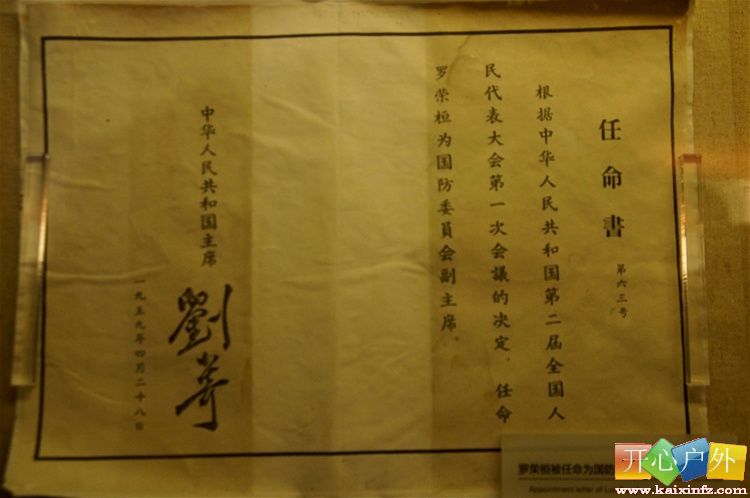 任命書
第六三号
根据中华人民共和国第二届全国人
民代表大会第一次会議的决定，任命
罗荣桓为国防委員会副主席。
中华人民共和国主席
劉少奇
一九五九年四月二十八日
罗荣桓被任命为国防
Appointment letter of
开心户外
www.kaixinfz.com